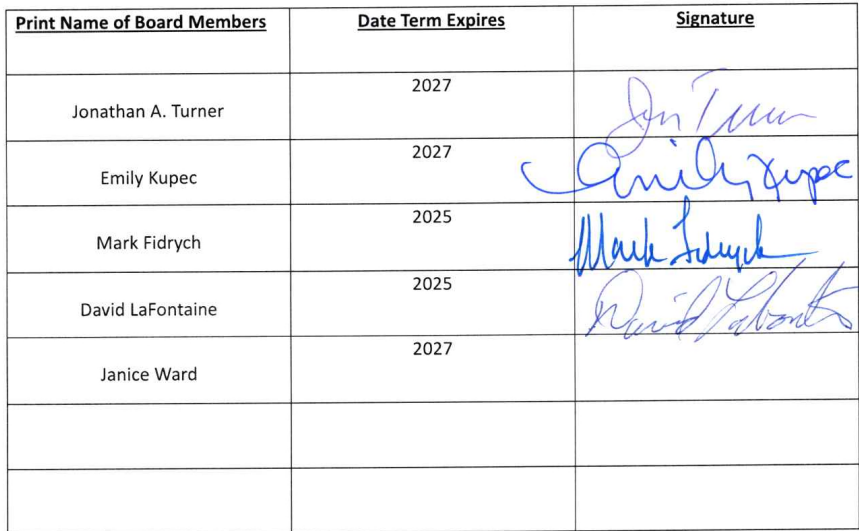 Print Name of Board Members Date Term Expires Signature
Jonathan A. Turner 2027 Jon Turner
Emily Kupec 2027 Emily Kupec
Mark Fidrych 2025 Mark Fidrych
David LaFontaine 2025 David
Janice Ward 2027